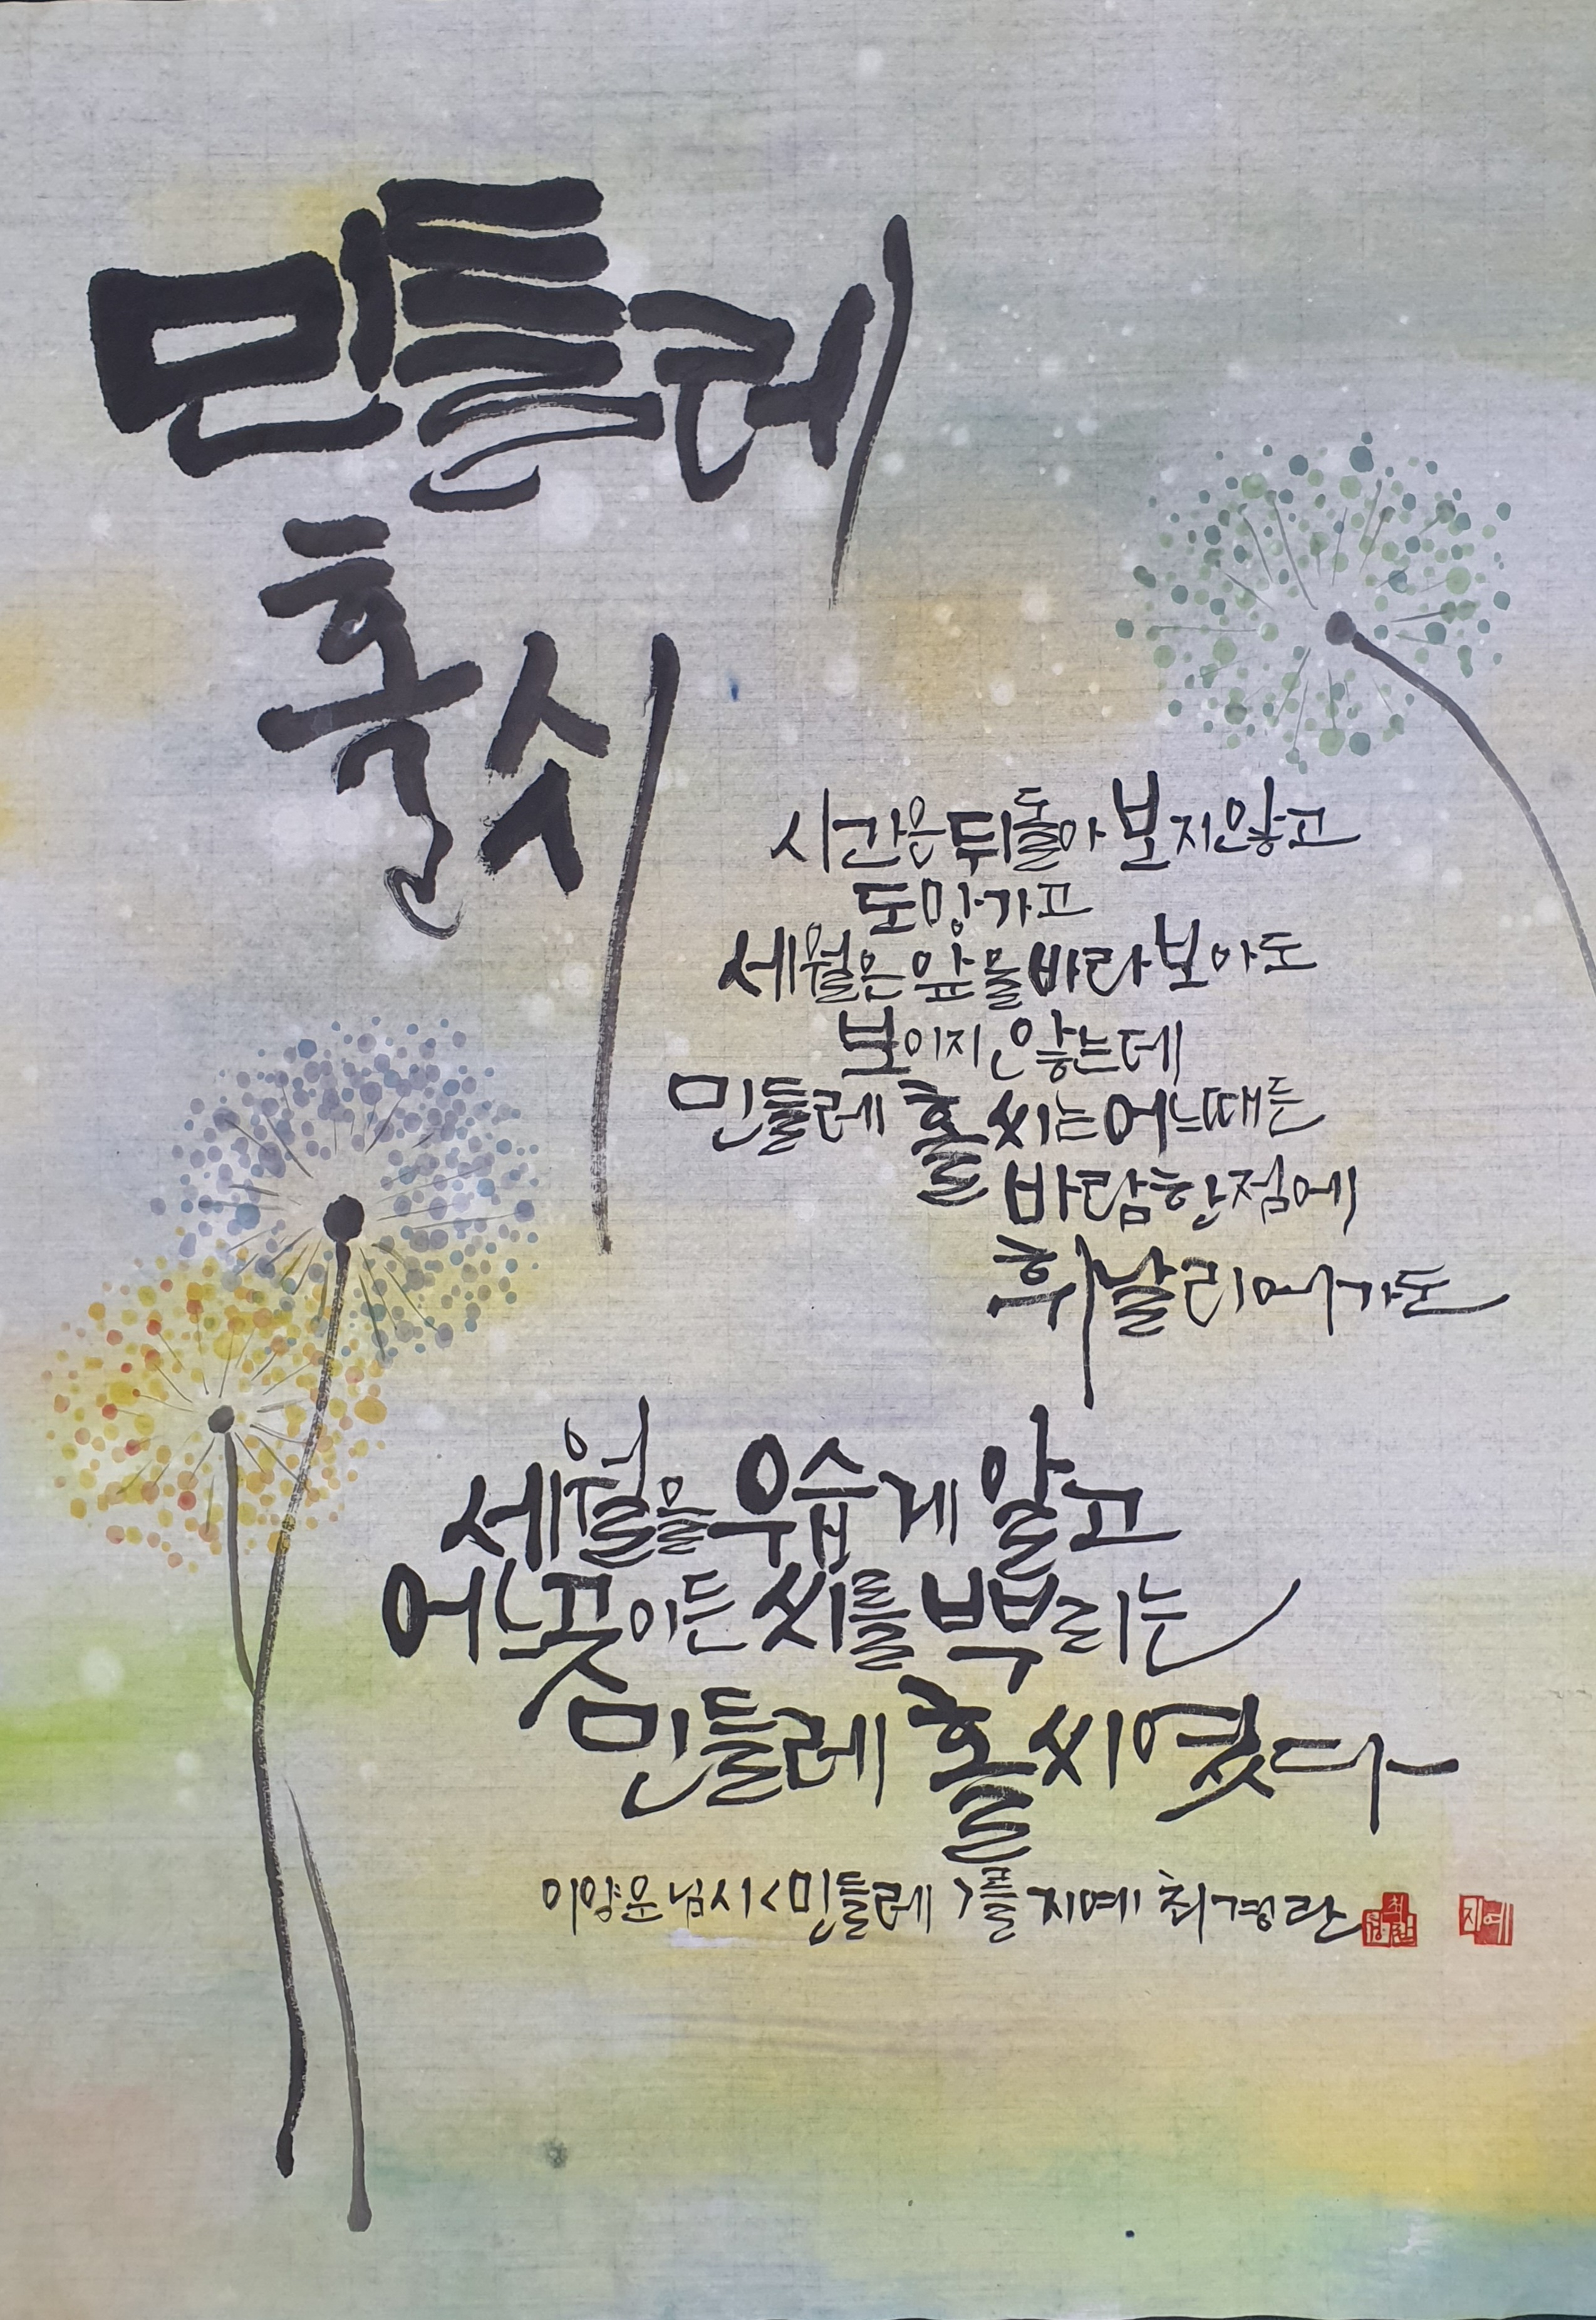 민들레
홀씨
시간은 뒤돌아 보지 않고
도망가고
세월은 앞을 바라보아도
보이지 않는데
민들레 홀씨는 어느때든
바람 한 점에
휘날리어가도
세월을 우습게 알고
어느곳이든 씨를 뿌리는
민들레 홀씨였다
이양운님 시 <민들레>를 지예 최경란
지예